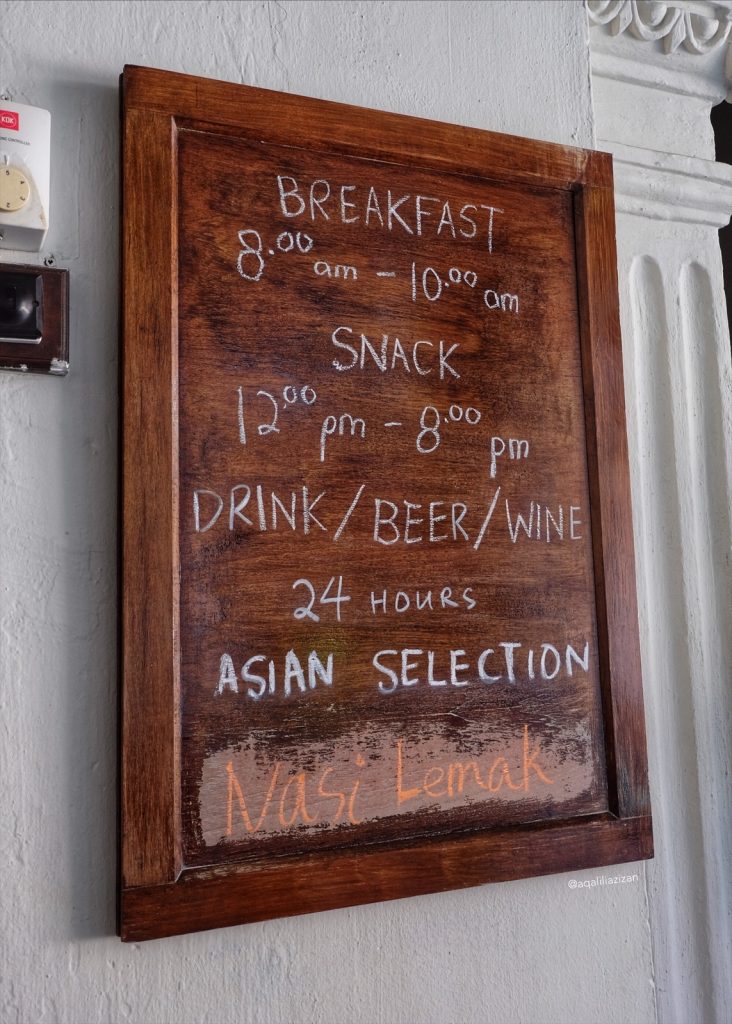 KDK
BREAKFAST
8.00 am - 10.00 am
SNACK
12.00 pm - 8.00 pm
DRINK/BEER/WINE
24 HOURS
ASIAN SELECTION
Nasi Lemak
@aqaliliazizan